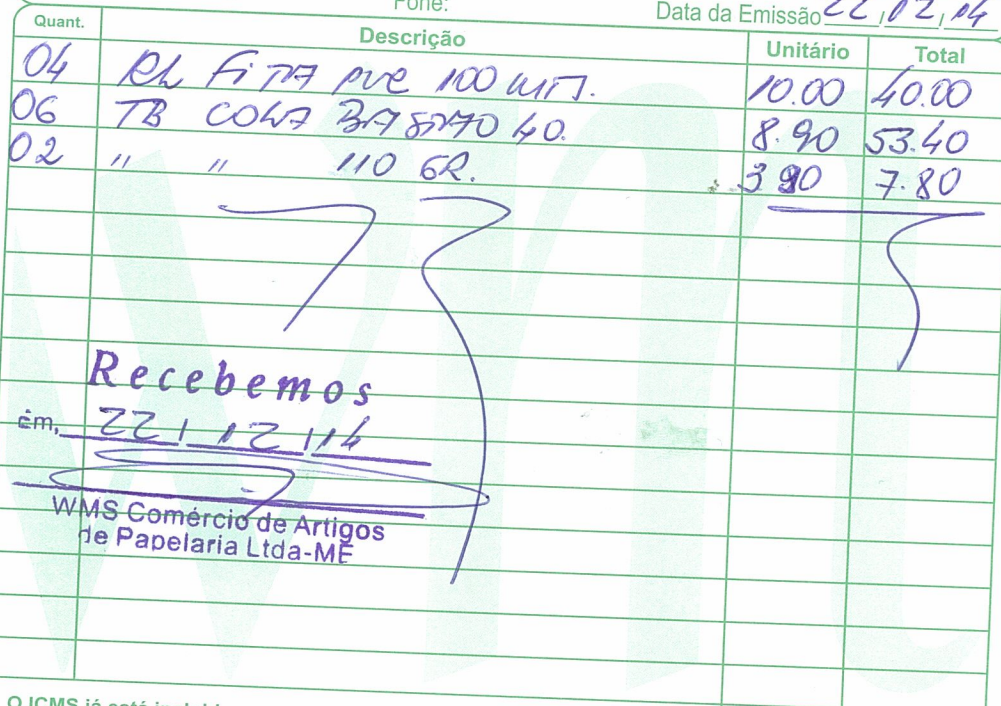 Fone:
Data da Emissão 22/02/14
Quant. Descrição Unitário Total
04 RL FiTA PVC 100 MT. 10.00 40.00
06 TB COLA BASTÃO 40. 8.90 53.40
02 " " 110 GR. 3.90 7.80
Recebemos
em, 22/12/14
WMS Comércio de Artigos
de Papelaria Ltda-ME
O ICMS já está